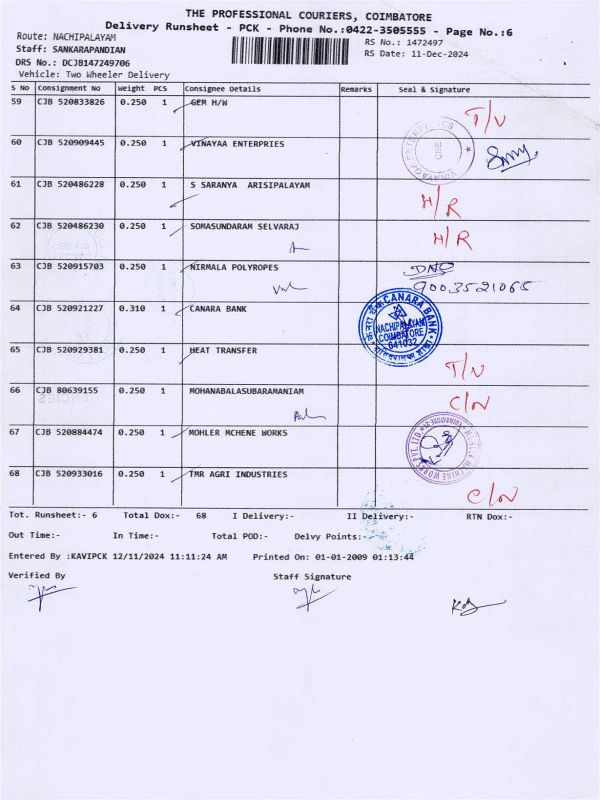 THE PROFESSIONAL COURIERS, COIMBATORE
Delivery Runsheet - PCK - Phone No.:0422-3505555 - Page No.:6
Route: NACHIPALAYAM
RS No.: 1472497
Staff: SANKARAPANDIAN
RS Date: 11-Dec-2024
DRS No.: DCJB147249706
Vehicle: Two Wheeler Delivery
S No Consignment No Weight PCS Consignee Details Remarks Seal & Signature
59 CJB 520833826 0.250 1 GEM H/W T/V
60 CJB 520909445 0.250 1 VINAYAA ENTERPRIES
VINAYAGA ENTERPRISES CBE
61 CJB 520486228 0.250 1 S SARANYA ARISIPALAYAM H/R
62 CJB 520486230 0.250 1 SOMASUNDARAM SELVARAJ H/R
63 CJB 520915703 0.250 1 NIRMALA POLYROPES
9003521065
64 CJB 520921227 0.310 1 CANARA BANK
CANARA BANK
NACHIPALAYAM
COIMBATORE
641032
65 CJB 520929381 0.250 1 HEAT TRANSFER T/V
66 CJB 80639155 0.250 1 MOHANABALASUBARAMANIAM C/N
67 CJB 520884474 0.250 1 MOHLER MCHENE WORKS
MOHLER MACHINE WORKS PVT. LTD.
68 CJB 520933016 0.250 1 TMR AGRI INDUSTRIES C/N
Tot. Runsheet:- 6 Total Dox:- 68 I Delivery:- II Delivery:- RTN Dox:-
Out Time:- In Time:- Total POD:- Delvy Points:-
Entered By :KAVIPCK 12/11/2024 11:11:24 AM Printed On: 01-01-2009 01:13:44
Verified By Staff Signature